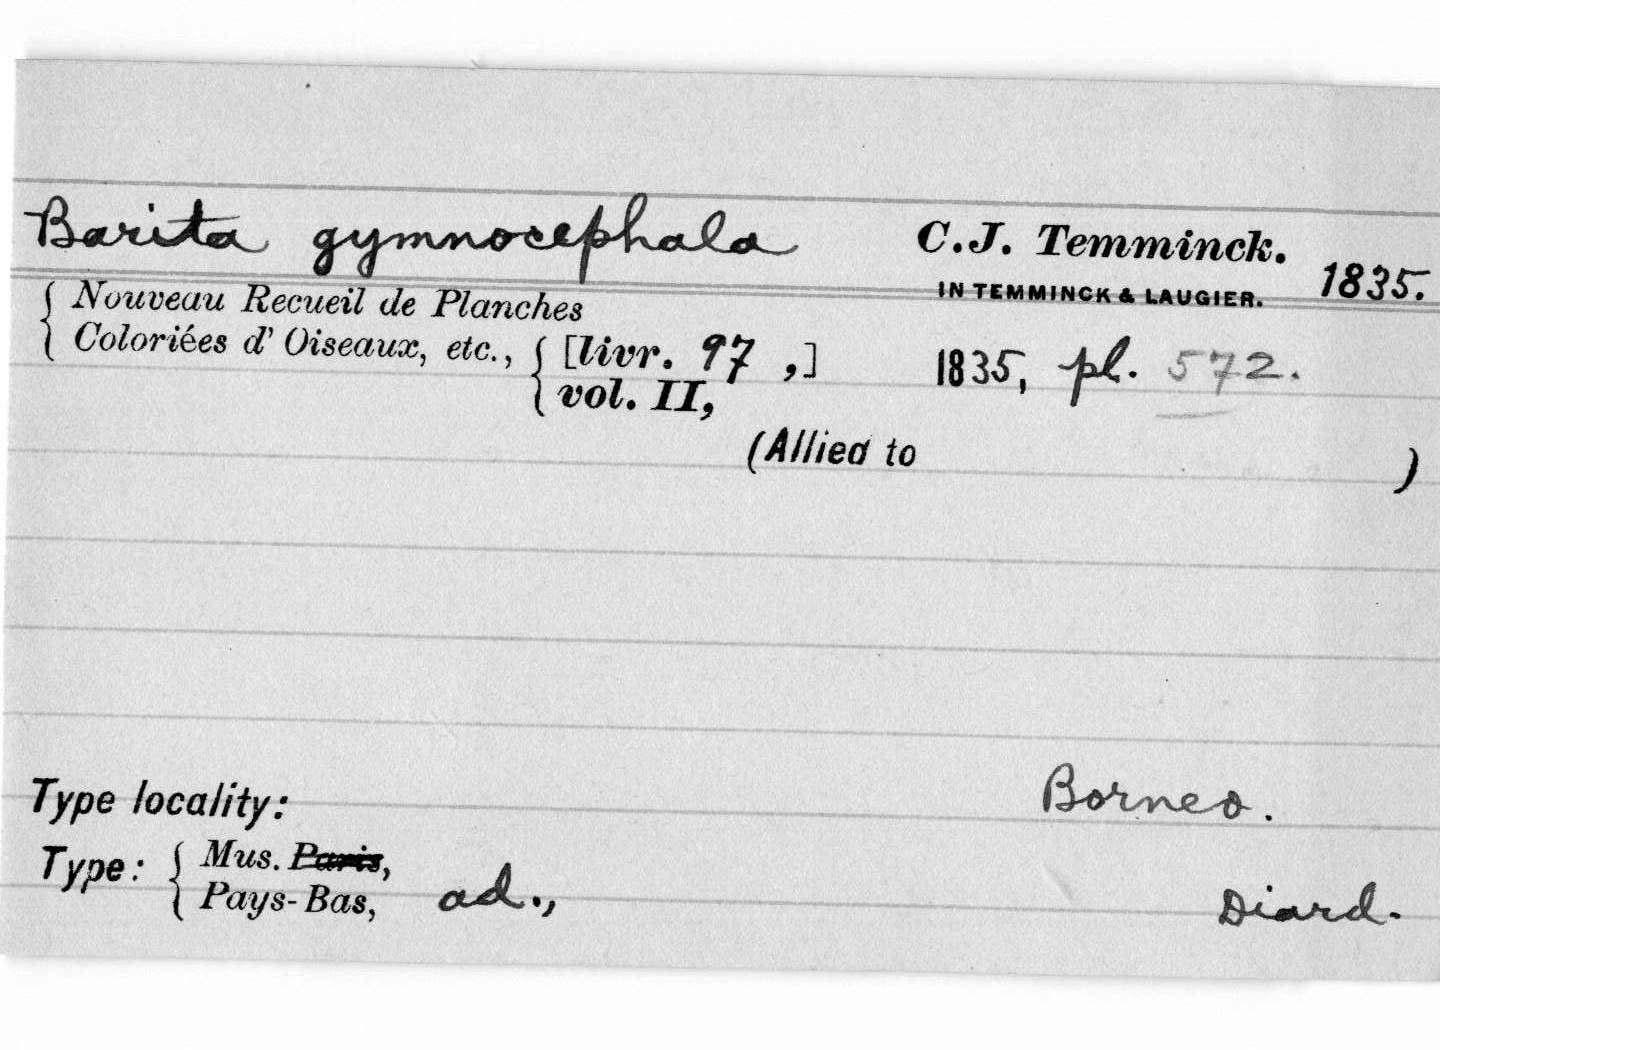 Barita gymnocephala C.J. Temminck.
IN TEMMINCK & LAUGIER. 1835.
Nouveau Recueil de Planches
Coloriées d' Oiseaux, etc., [livr. 97 ,] 1835, pl. 572.
vol. II,
(Allied to )
Type locality: Borneo.
Type: Mus. Paris,
Pays-Bas, ad., Diard.